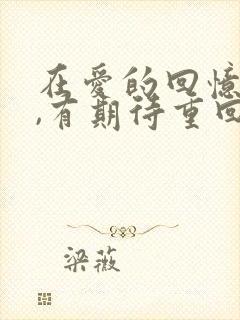 在爱的回憶
,有期待重回
梁薇